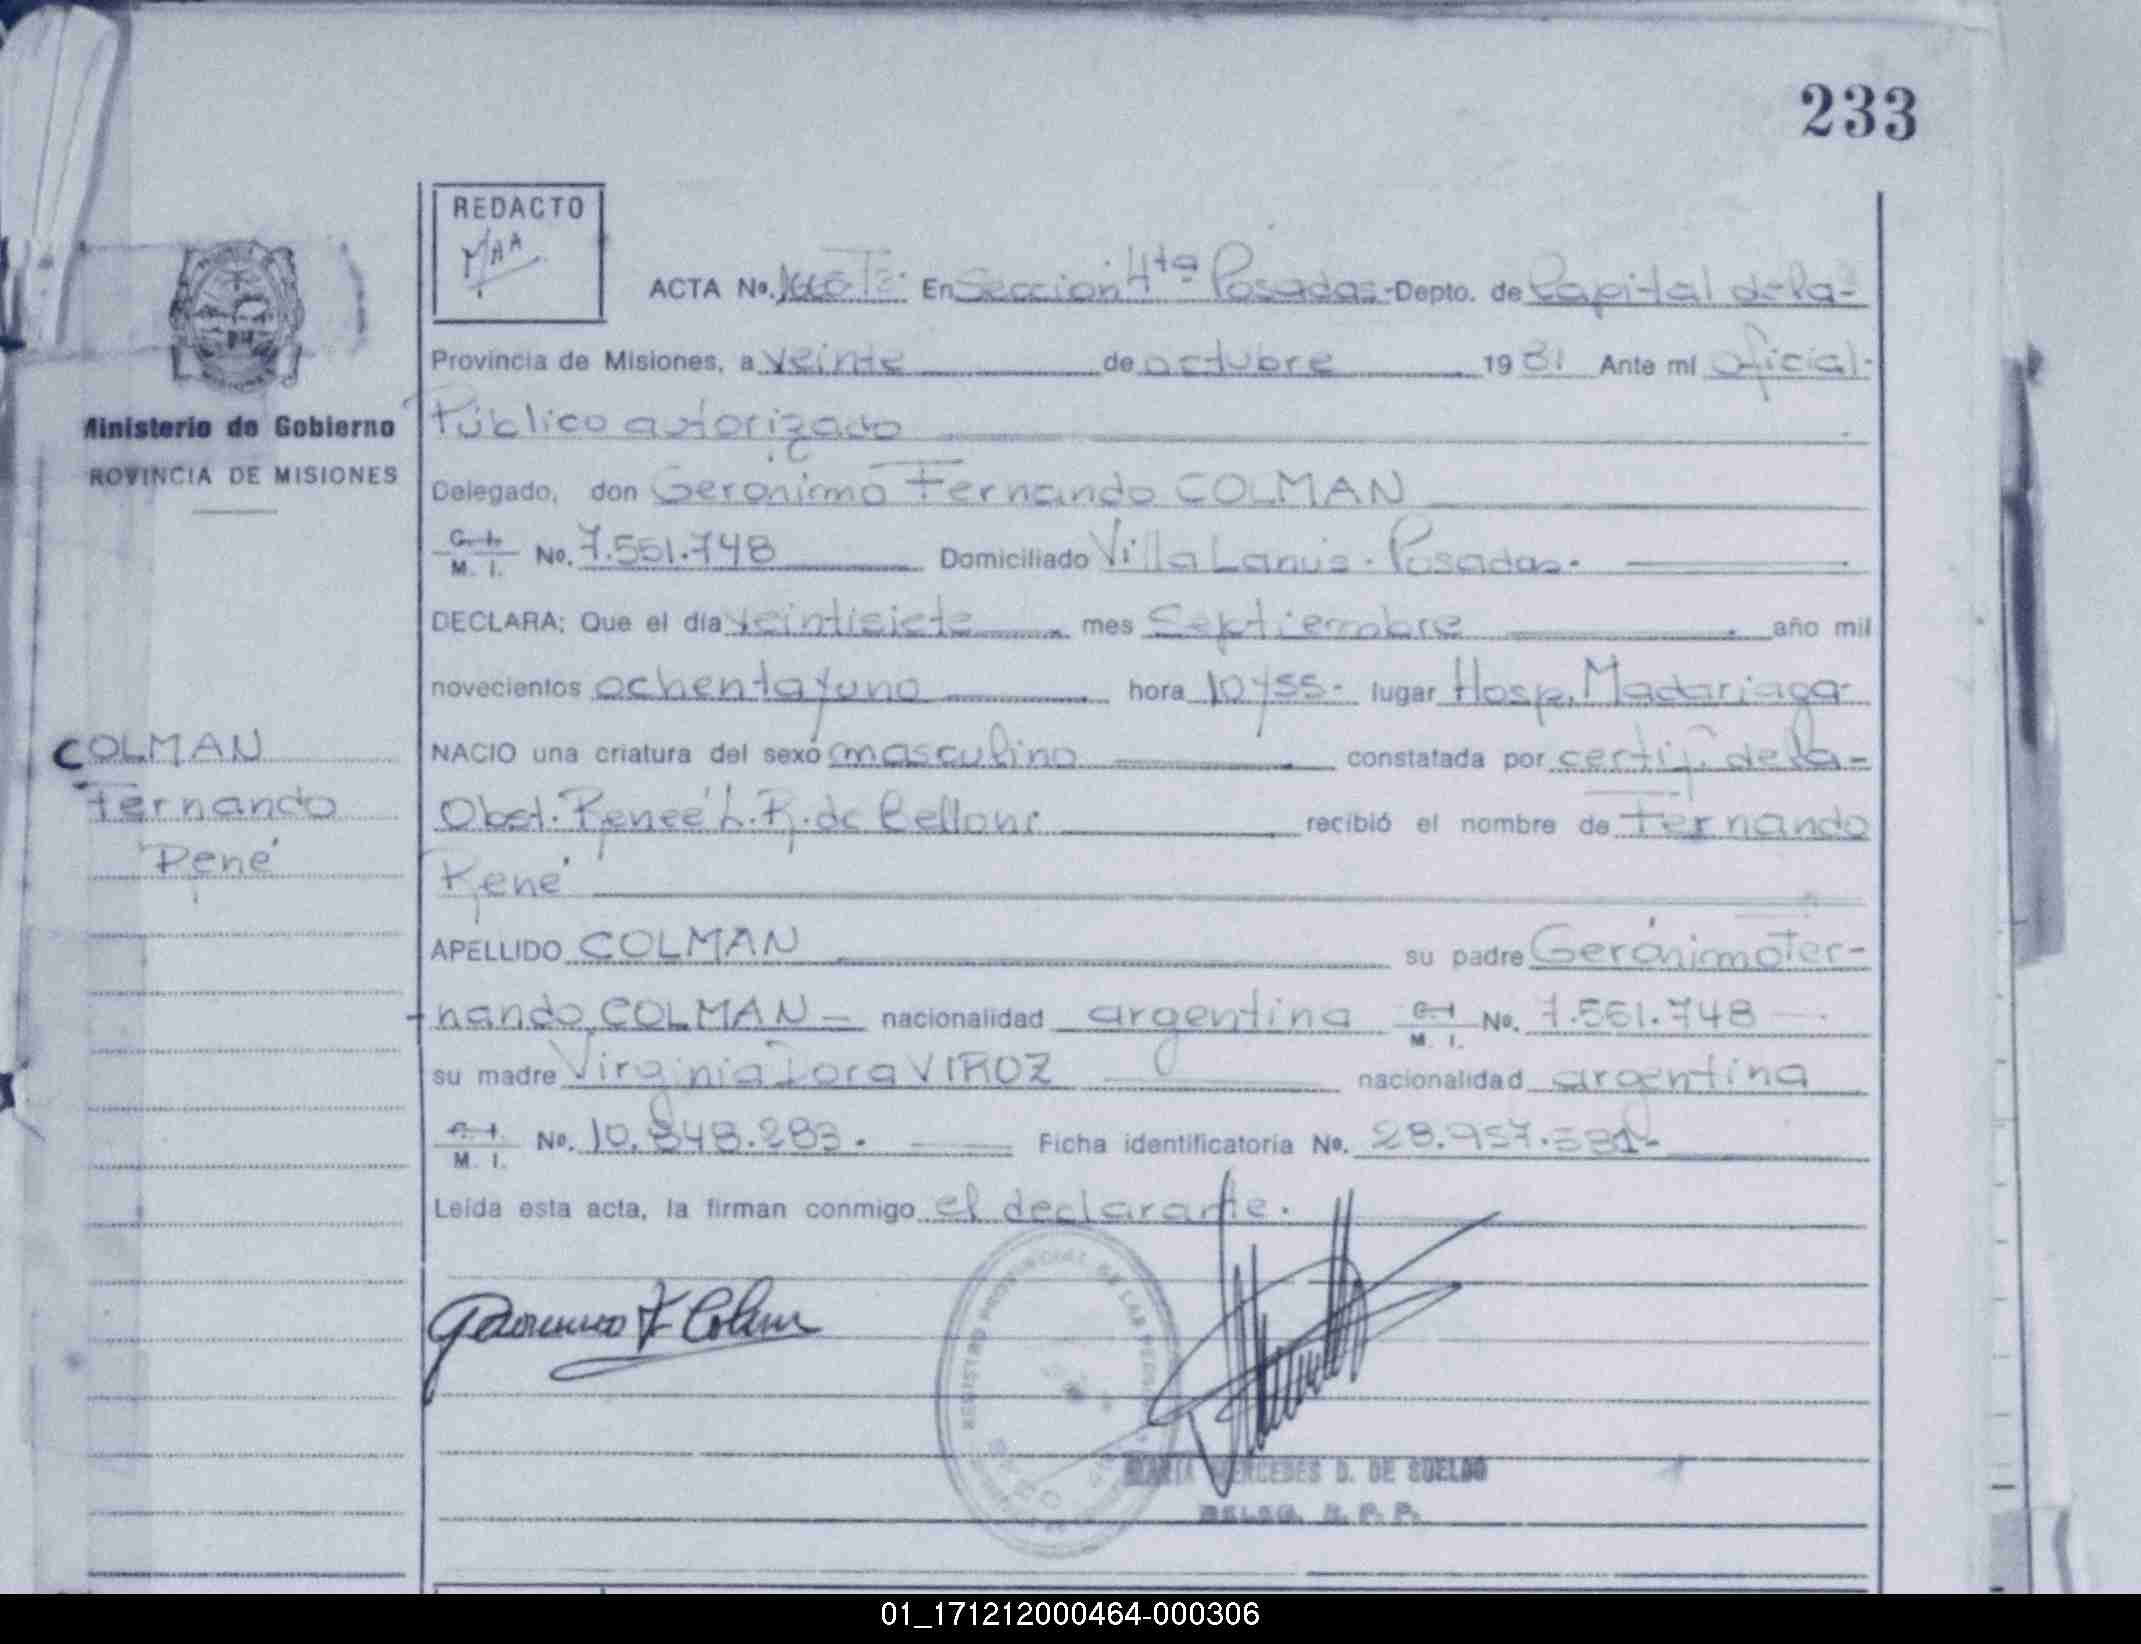 233
REDACTO
MAA
ACTA No. En Sección 4ta Posadas - Depto. de Capital de la -
Provincia de Misiones, a veinte de octubre 19 81 Ante mí Oficial -
Público autorizado
Ministerio de Gobierno
ROVINCIA DE MISIONES
Delegado, don Gerónimo Fernando COLMAN
C. I. M. I. No. 7.551.748 Domiciliado Villa Lanús - Posadas -
DECLARA: Que el día veintisiete mes Septiembre año mil
novecientos ochenta y uno hora 10 y 55 - lugar Hosp. Madariaga -
COLMAN
Fernando
René
NACIO una criatura del sexo masculino constatada por certif. de la -
Obst. Renée L. R. de Belloni recibió el nombre de Fernando
René
APELLIDO COLMAN su padre Gerónimo Fer-
nando COLMAN - nacionalidad argentina C. I. M. I. No. 7.551.748
su madre Virginia VIROZ nacionalidad argentina
C. I. M. I. No. 10.848.283. Ficha identificatoria No. 28.957.
Leída esta acta, la firman conmigo el declarante.
Geronimo F Colman
REGISTRO PROVINCIAL DE LAS
MARIA MERCEDES D. DE SUELDO
DELEG. R. P. P.
01_171212000464-000306